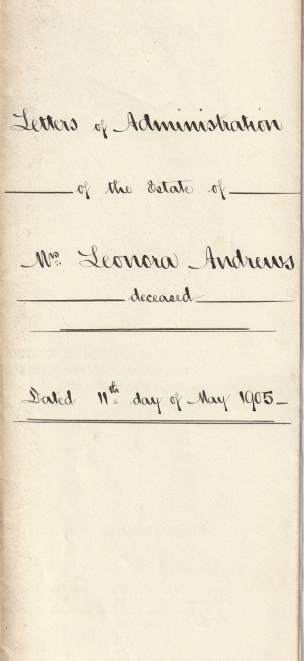 Letters of Administration
of the Estate of
Mrs. Leonora Andrews
deceased
Dated 11th day of May 1905